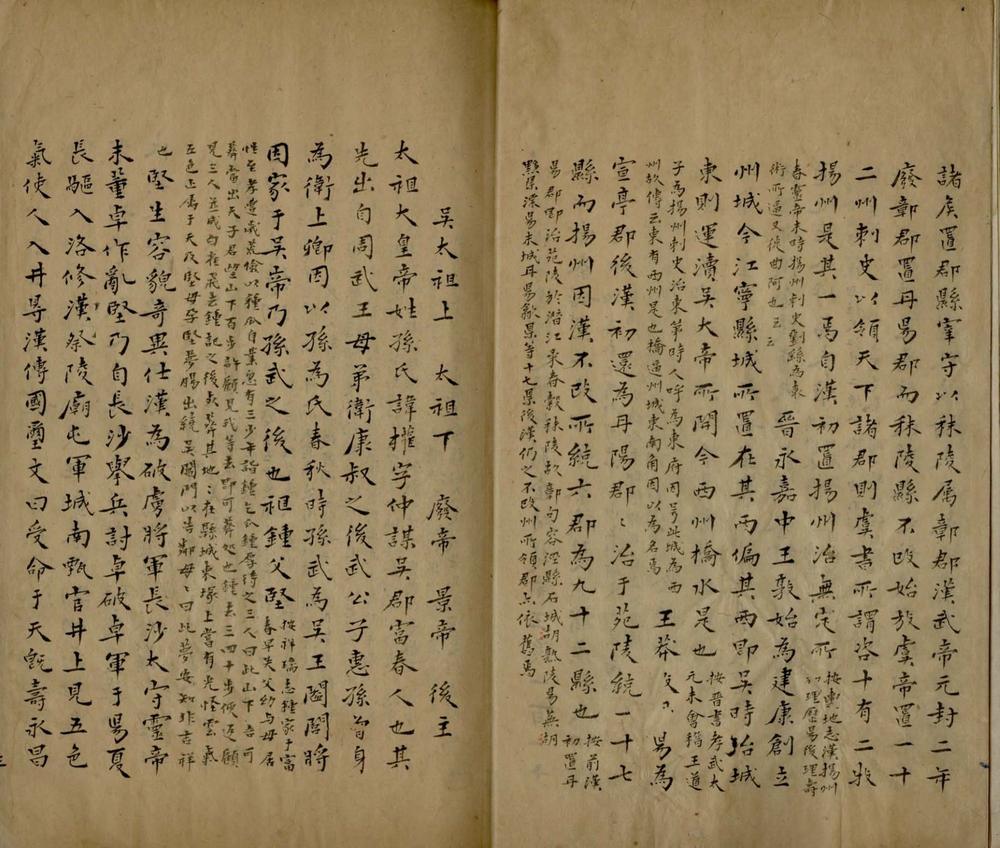 諸侯置郡縣宰守以秣陵属鄣郡漢武帝元封二年
廢鄣郡置丹昜郡而秣陵縣不改始於虞帝置一十
二州刺史以領天下諸郡則虞書所謂咨十有二牧
揚州是其一焉自漢初置揚州治無定所按輿地志漢揚州
初理歷昜後理壽
春靈帝末時揚州刺史劉繇為袁
術所逼又徙曲阿也
晉永嘉中王敦始為建康創立
州城今江寧縣城所置在其西偏其西即吳時冶城
東則運瀆吳大帝所開今西州橋水是也按晋書孝武太
元末會稽王道
子為揚州刺史治東第時人呼為東府因号此城為西
州故傳云東有西州是也橋逼州城東南角因以為名焉
王莽
昜為
宣亭郡後漢初還為丹陽郡〻治于菀陵統一十七
縣而揚州因漢不改所統六郡為九十二縣也按前漢
初置丹
昜郡即治菀陵於潜江乘春穀秣陵故鄣句容涇縣石城胡熟陵昜蕪湖
黟溧昜宣城丹昜歙等十七縣後漢仍之不改州所領郡亦依舊焉
吳太祖上 太祖下 廢帝 景帝 後主
太祖大皇帝姓孫氏諱權字仲謀吳郡富春人也其
先出自周武王母弟衛康叔之後武公子惠孫曾身
為衛上卿因以孫為氏春秋時孫武為吳王闔閭將
因家于吳帝乃孫武之後也祖鍾父堅按祥瑞志鍾家于富
春早失父幼与母居
性至孝遭歲荒儉以種瓜自業忽有三少年詣鍾乞瓜鍾厚待之三人曰此山下善可
葬當出天子君望山下百步許顧見我等去即可葬處也鍾去三四十步便返顧
見三人並成白鶴飛去鍾記之後死葬其地〻在縣城東塚上當有光怪雲氣
五色上属于天及堅母孕堅夢腸出繞吳閶門以告鄰母〻曰此夢安知非吉祥
也
堅生容貌奇異仕漢為破虜將軍長沙太守靈帝
末董卓作亂堅乃自長沙舉兵討卓破卓軍于昜夏
長驅入洛修漢祭陵廟屯軍城南甄官井上見五色
氣使人入井尋漢傳國璽文曰受命于天旣壽永昌